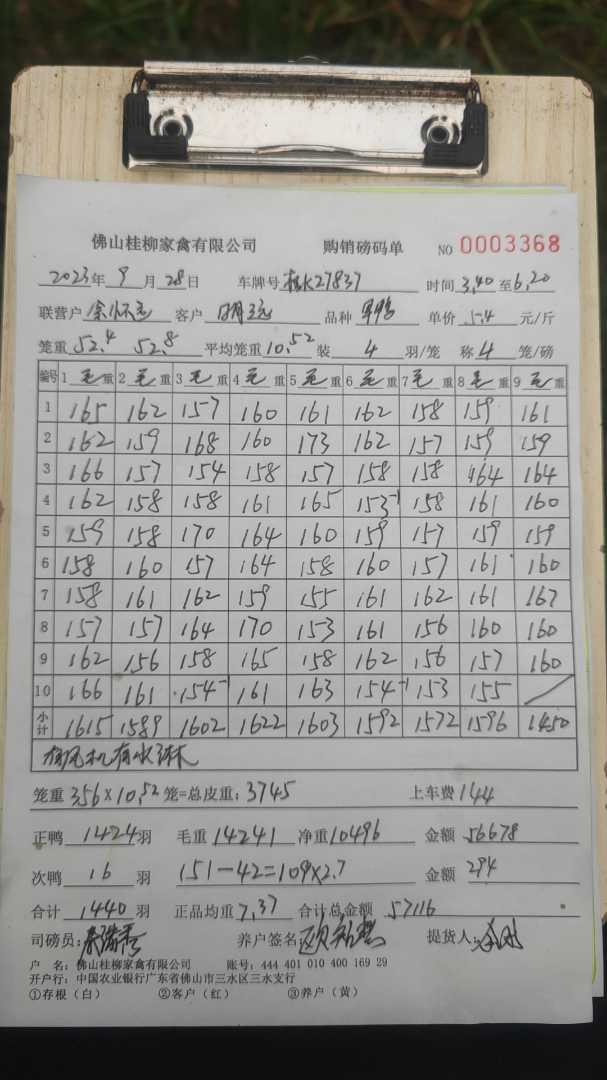 佛山桂柳家禽有限公司 购销磅码单 NO 0003368
2023年 9 月 28日 车牌号 桂K27837 时间 3.40 至 6.20
联营户 客户 品种 单价 5.4 元/斤
笼重 52.4 52.8 平均笼重 10.52 装 4 羽/笼 称 4 笼/磅
编号 1 毛 重 2 毛 重 3 毛 重 4 毛 重 5 毛 重 6 毛 重 7 毛 重 8 毛 重 9 毛 重
1 165 162 157 160 161 162 158 159 161
2 162 159 168 160 173 162 157 159 159
3 166 157 154 158 157 158 158 164 164
4 162 158 158 161 165 153-1 158 161 160
5 159 158 170 164 160 159 157 159 159
6 158 160 157 164 158 160 157 161 160
7 158 161 162 159 155 161 162 161 167
8 157 157 164 170 153 161 156 160 160
9 162 156 158 165 158 162 156 157 160
10 166 161 154-1 161 163 154-1 153 155
小计 1615 1589 1602 1622 1603 1592 1572 1596 1450
有风机有水淋
笼重 356×10.52 笼=总皮重: 3745 上车费 144
正鸭 1424 羽 毛重 14241 净重 10496 金额 56678
次鸭 16 羽 151-42=109×2.7 金额 294
合计 1440 羽 正品均重 7.37 合计总金额 57116
司磅员: 养户签名: 提货人:
户 名: 佛山桂柳家禽有限公司 账号: 444 401 010 400 169 29
开户行: 中国农业银行广东省佛山市三水区三水支行
①存根（白） ②客户（红） ③养户（黄）